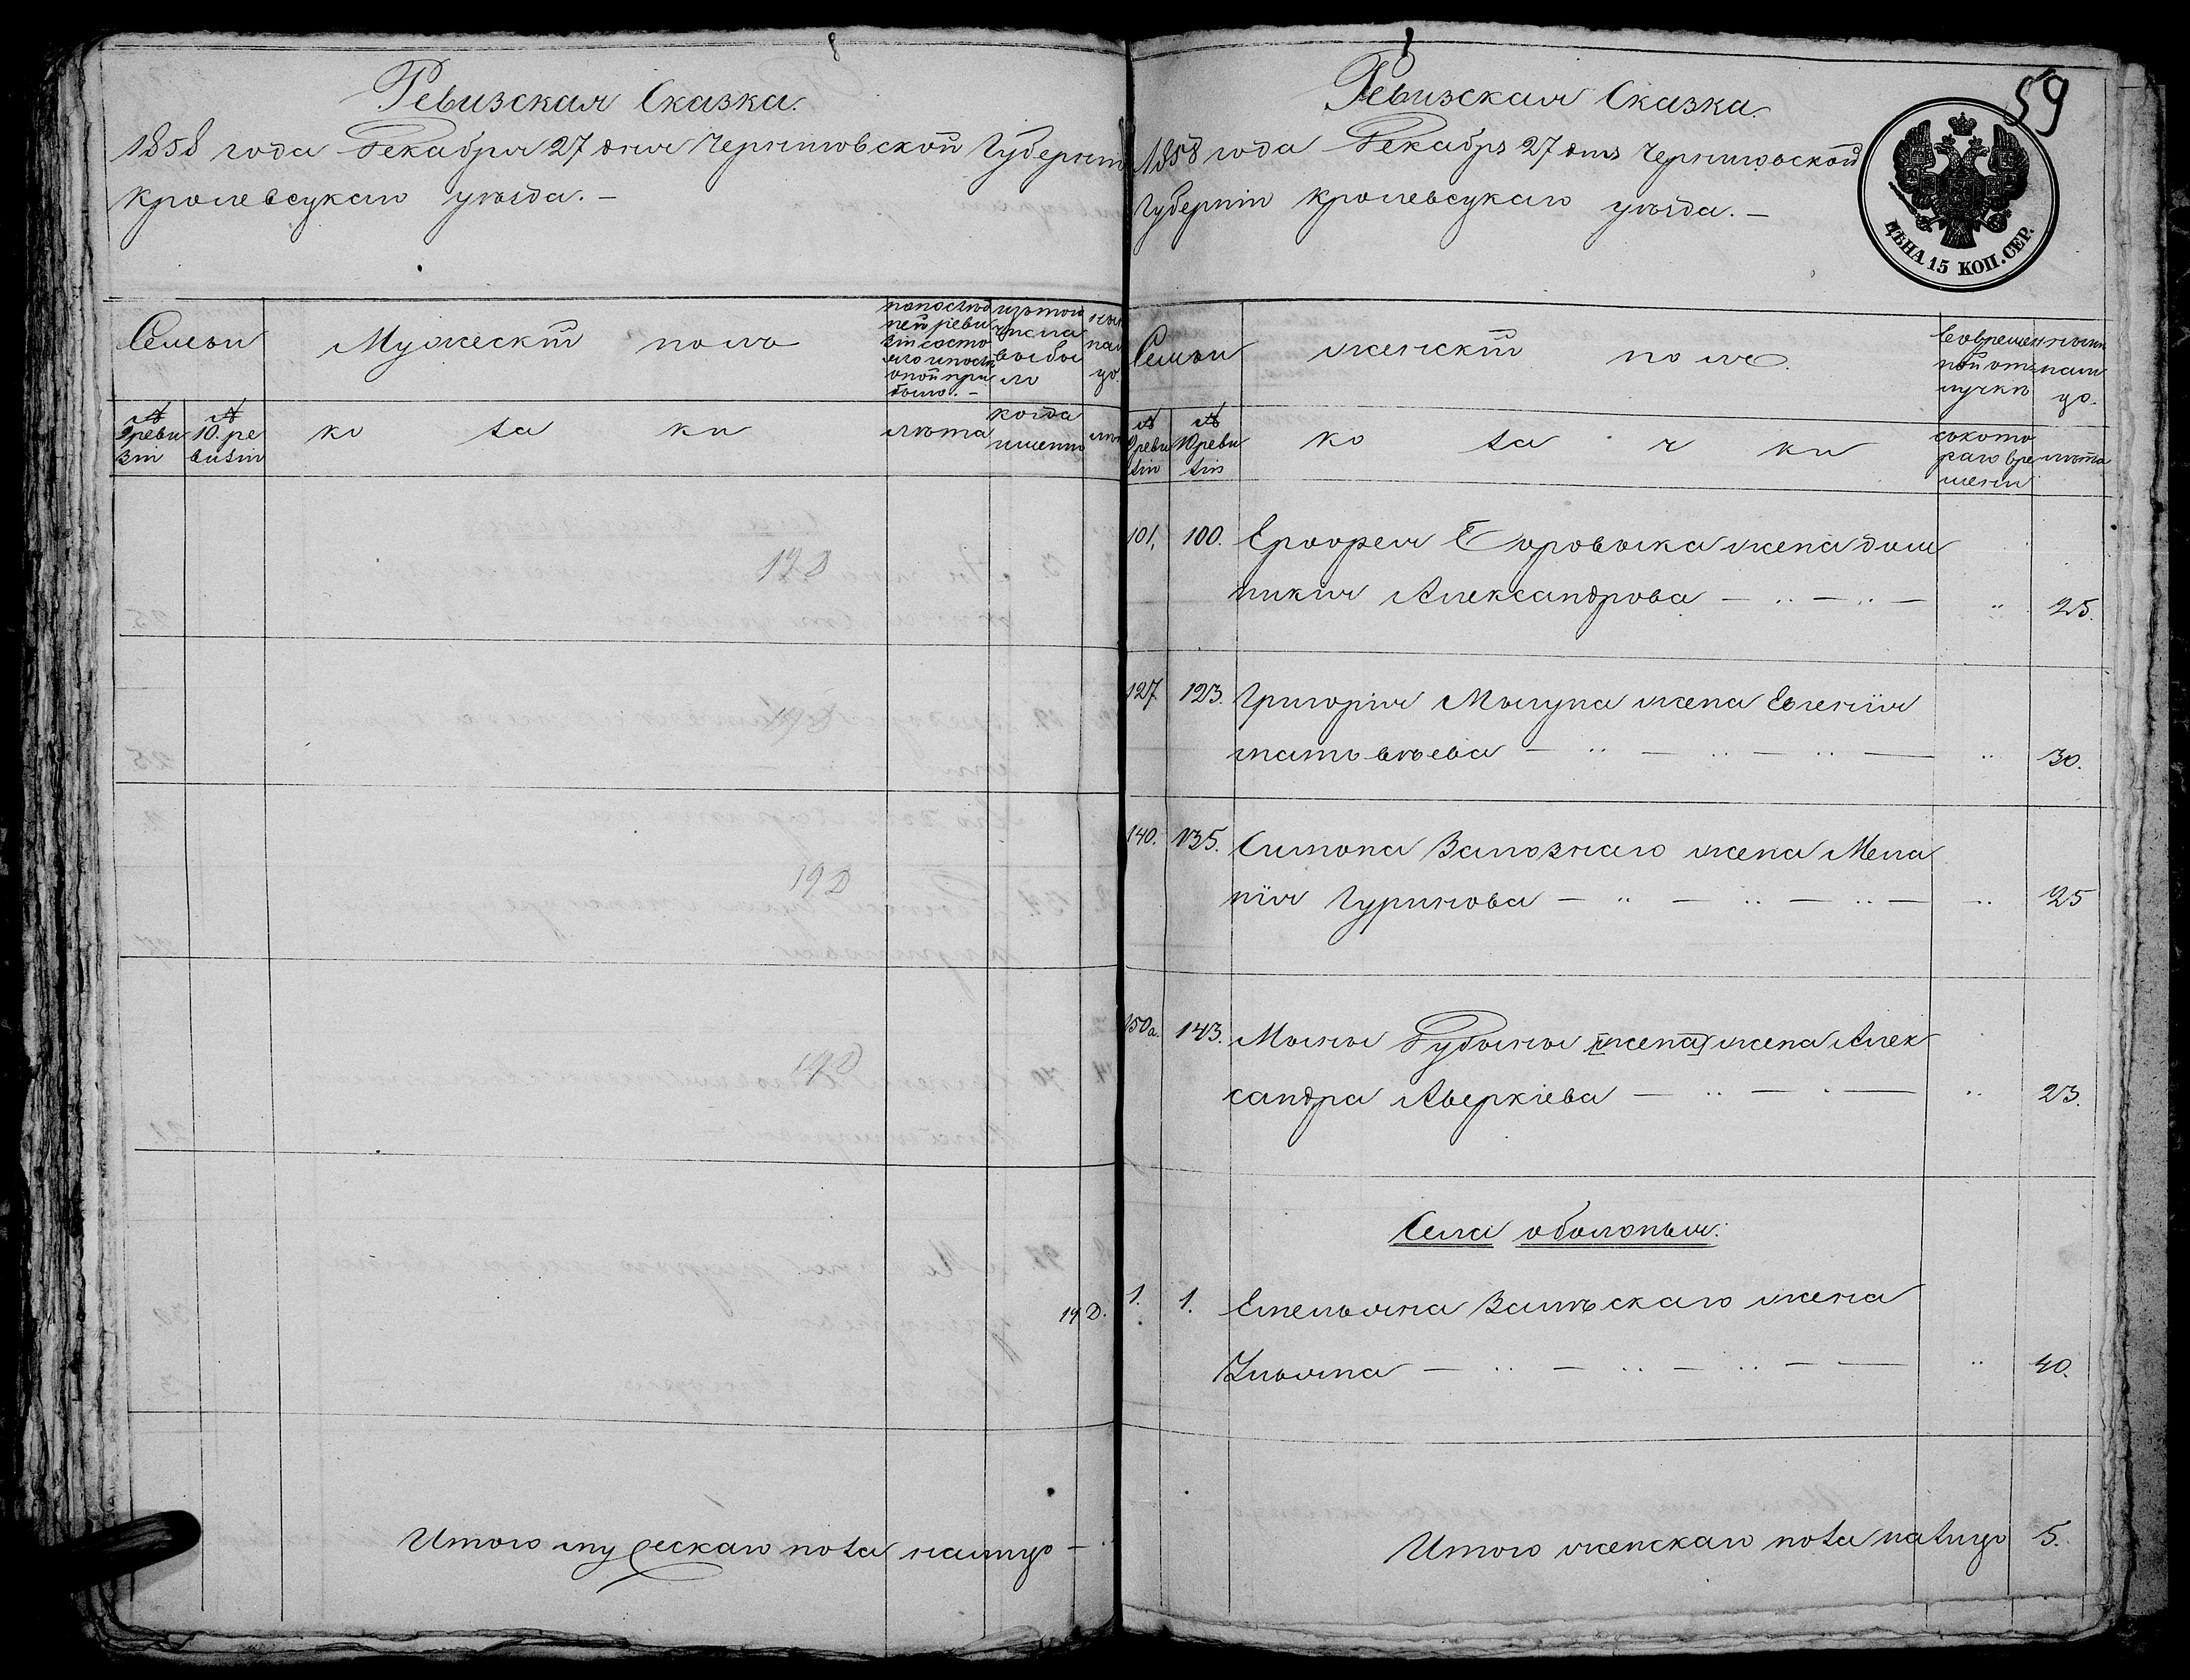 Ревизская Сказка.
1858 года Декабря 27 дня Черниговской Губернiи
Кролевецкаго уѣзда. –
Семьи
Мужескiй полъ
по последней ревизiи состояло и после оной прибыло. –
изъ того числа выбыло
№ 9 ревизiи
№ 10. ревизiи
ко ла ки
лѣта
когда именно
19 D
19 D
19 D
19 D
19 D.
Итого мужескаго пола налицо –
59
Ревизская Сказка.
1858 года Декабря 27 дня Черниговской
Губернiи Кролевецкаго уѣзда. –
ЦѢНА 15 КОП. СЕР.
Семьи
женскiй полъ.
Во временной отлучкѣ
налицо.
№ 9 ревизiи
№ 10 ревизiи
ко ла ч ки
съ котораго времени
лѣта
101. 100. Ерофея жена Дом
никiя Александрова – .. – .. – .. 25.
127 123. Григорiя Мысупа жена Евгенiя
Матьвѣева – .. – .. – .. – .. 30.
140. 135. Симона Залознаго жена Мела
нiя Гуринова – .. – .. – .. – .. 25
150а. 143. Мины Дубины [жена] жена Алек
сандра Аверкiева – .. – . – .. 23.
Села Оболонья.
1. 1. Емельяна Залѣскаго жена
Ульяна – .. – .. – .. – – .. 40.
Итого женскаго пола налицо 5.